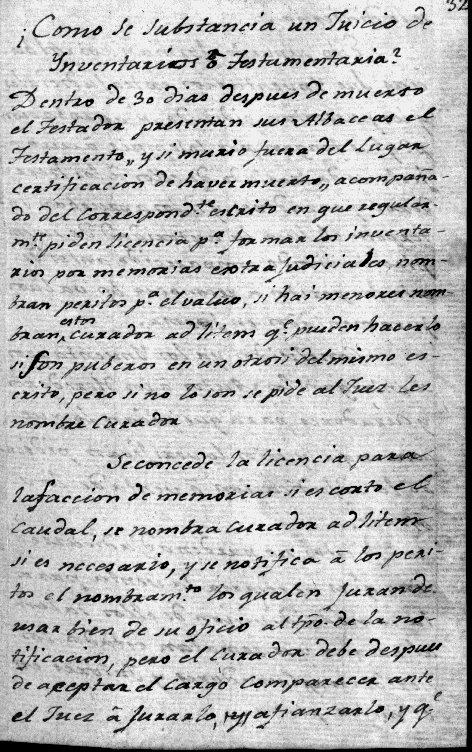 32
¿Como se substancia un Juicio de
Ynventarios ō Testamentaria?
Dentro de 30 dias despues de muerto
el Testador presentan sus Albaceas el
Testamento,, y si murio fuera del Lugar
certificacion de haver muerto,, acompaña-
do del Correspond.te escrito en que regular-
m.te piden licencia p.a formar los inventa-
rios por memorias extrajudiciales, nom-
bran peritos p.a el valuo, si hai menores nom-
bran estos curador ad litem q.e pueden hacerlo
si son puberos en un otrosi del mismo es-
crito, pero si no lo son se pide al Juez les
nombre curador
Se concede la licencia para
la faccion de memorias si es corto el
caudal, se nombra curador ad litem
si es necesario, y se notifica ā los peri-
tos el nombram.to los quales juran de
usar bien de su oficio al tpō. de la no-
tificacion, pero el curador debe despues
de aceptar el cargo comparecer ante
el Juez ā jurarlo, y afianzarlo, y q.e